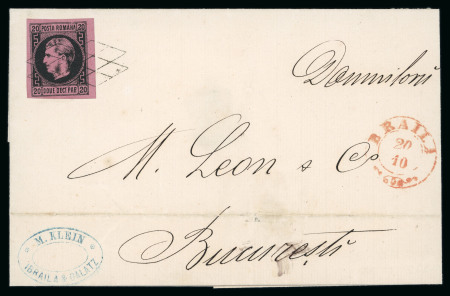 POSTA ROMANA
20 20
20 DOUE DECI PAR 20
Domnilorŭ
BRAILA
20
10
M. Leon & Co.
M. KLEIN
IBRAILA & GALATZ
Bucureşti